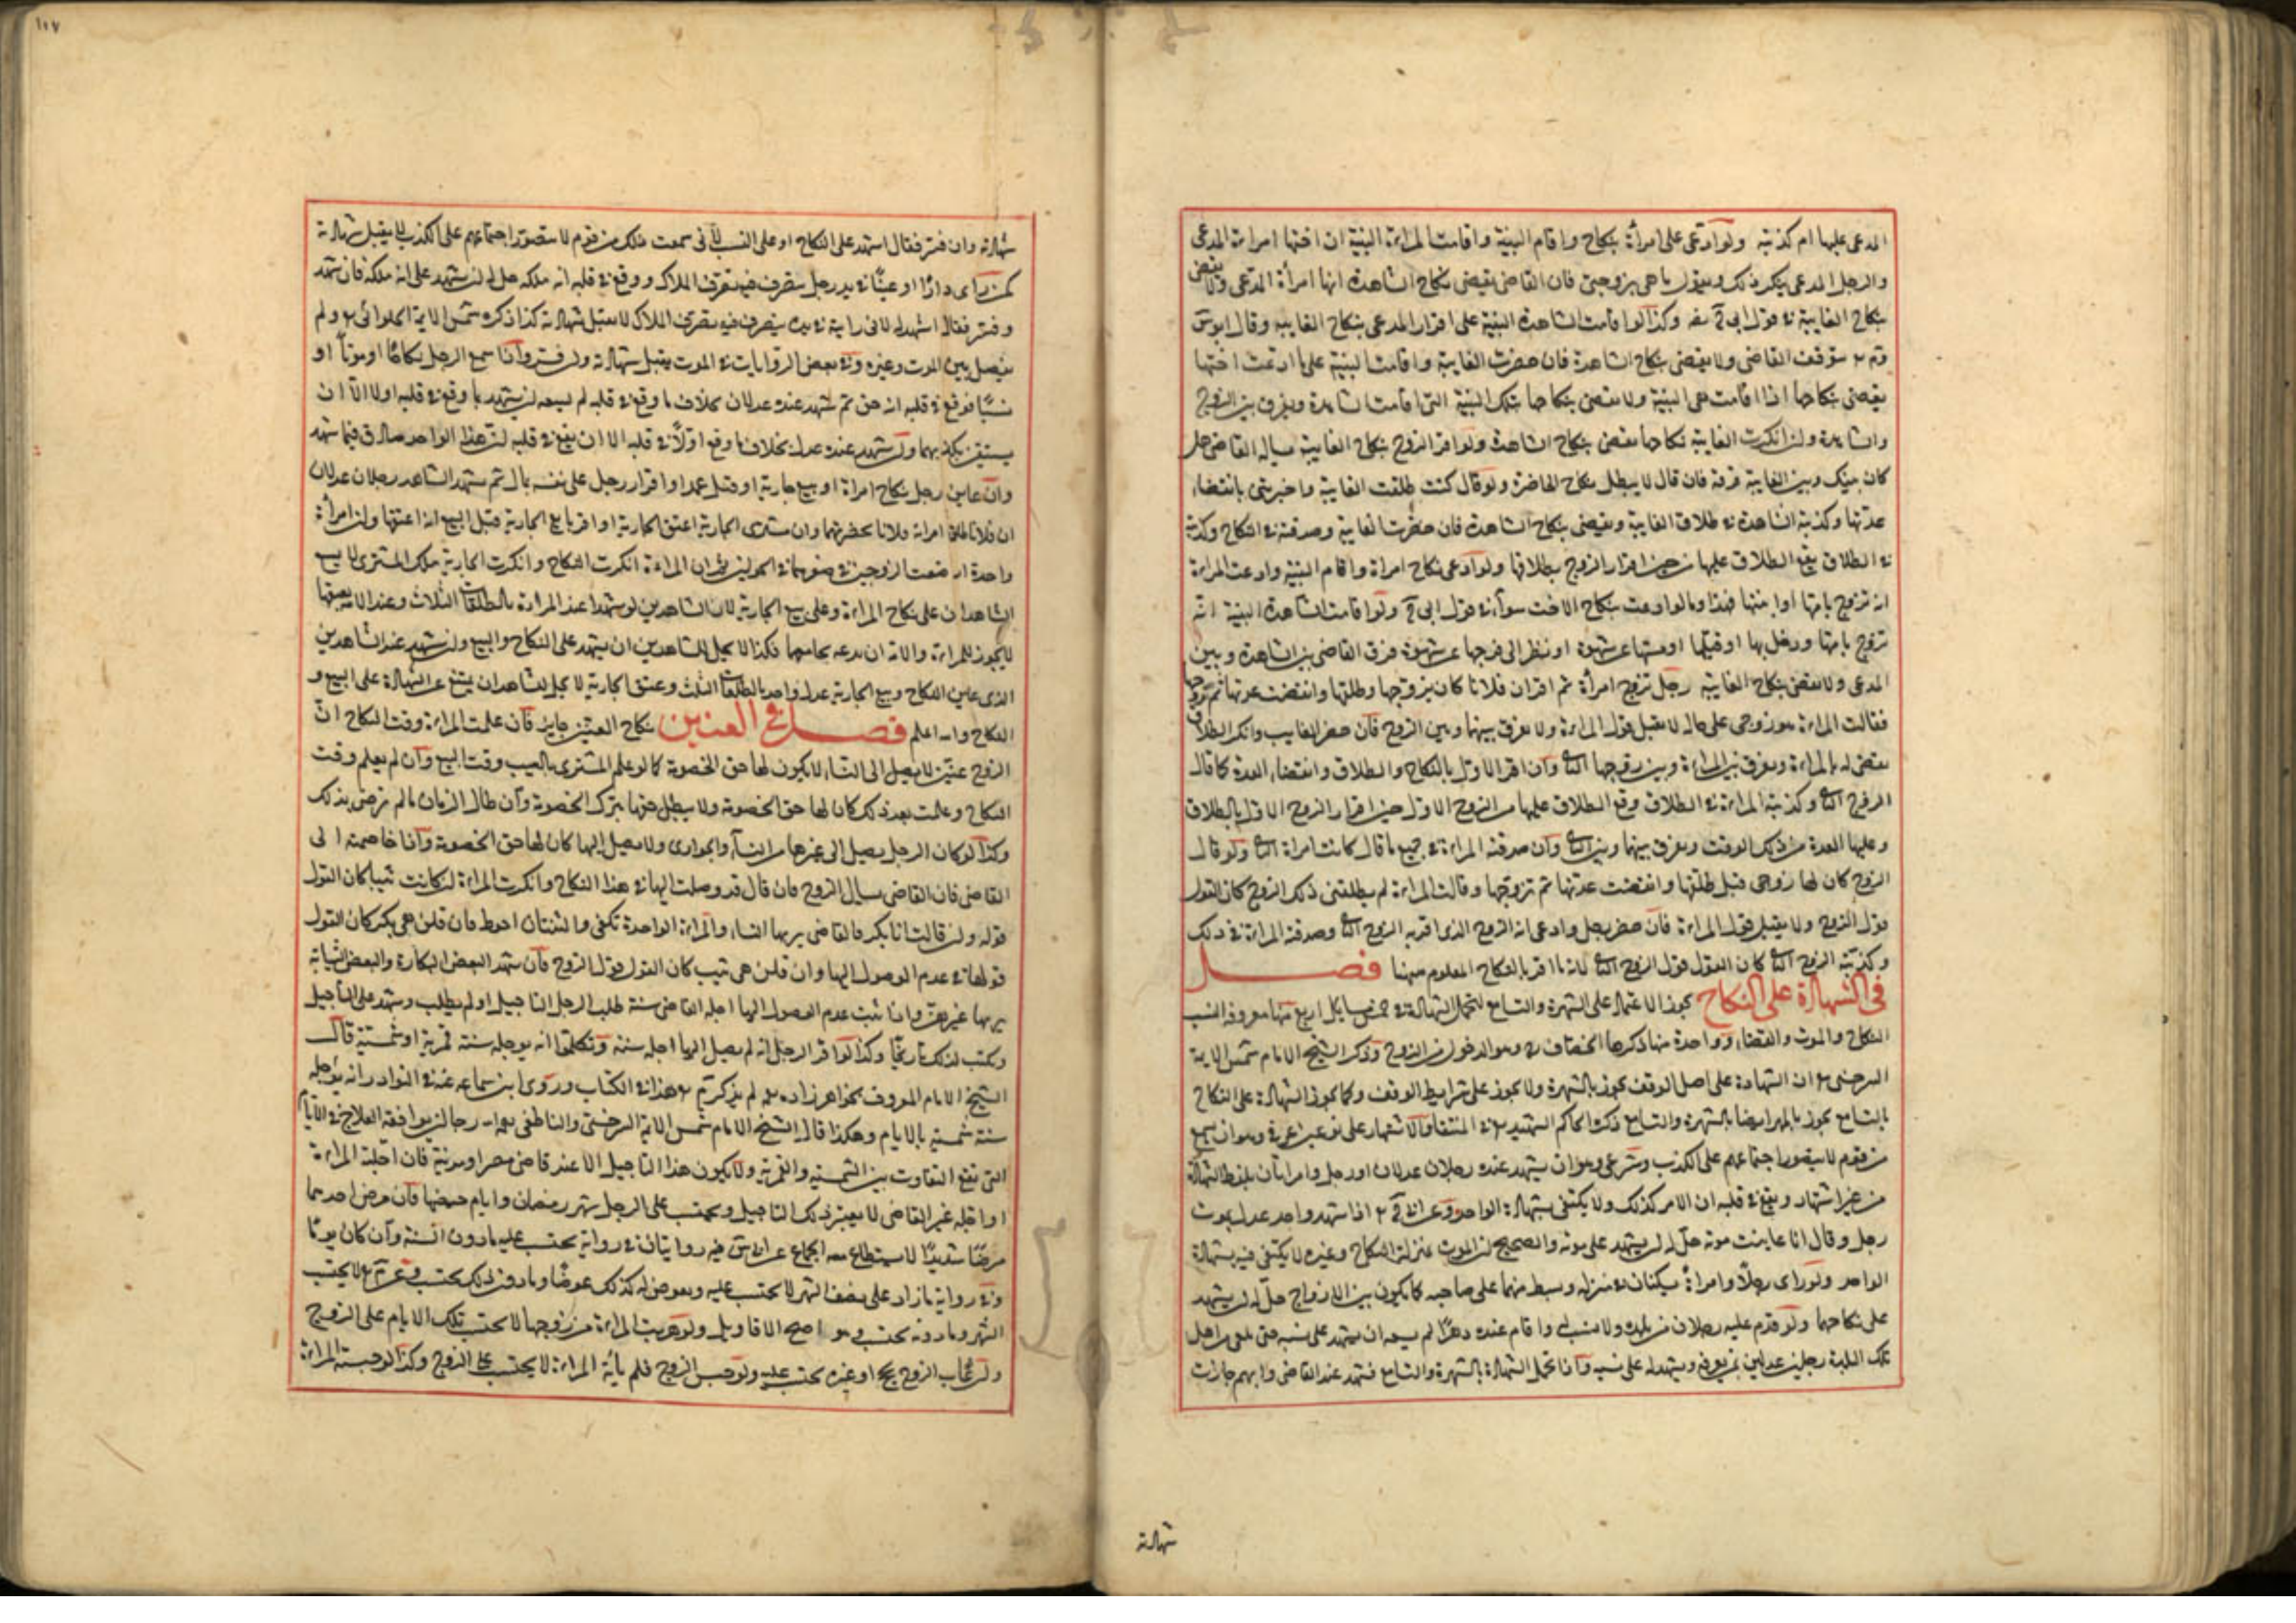 المدعى عليها ام كذبته ولو ادعى على امرأة بنكاح واقام البينة واقامت المراءة البينة ان اختها امراءة المدعى
والرجل المدعى ينكر ذلك ويقول ما هى بزوجتى فان القاضى يقضى بنكاح الشاهدة انها امرأة المدعى ولا يقضى
بنكاح الغايبة فى قول ابى ح وكذا لو اقامت الشاهدة البينة على اقرار المدعى بنكاح الغايبة وقال ابو س
و م يتوقف القاضى ولا يقضى بنكاح الشاهدة فان حضرت الغايبة واقامت البينة على ما ادعت اختها
يقضى بنكاحها اذا اقامت هى البينة ولا يقضى بنكاحها بتلك البينة التى اقامت الشاهدة ويفرق بين الزوج
والشاهدة وان انكرت الغايبة نكاحها يقضى بنكاح الشاهدة ولو اقر الزوج بنكاح الغايبة سياله القاضى هل
كان بينك وبين الغايبة فرقة فان قال لا يبطل نكاح الحاضرة ولو قال كنت طلقت الغايبة واخبرتنى بانقضاء
عدتها وكذبته الشاهدة فى طلاق الغايبة ويقضى بنكاح الشاهدة فان حضرت الغايبة وصدقته فى النكاح وكذبته
فى الطلاق يقع الطلاق عليها من حين اقرار الزوج بطلاقها ولو ادعى نكاح امراة واقام البينة وادعت المراءة
انه تزوج بامها او ابنتها فهذا وما لو ادعت بنكاح الاخت سواء فى قول ابى ح ولو اقامت الشاهدة البينة انه
تزوج بامها ودخل بها او قبلها او مسها عن شهوة او نظر الى فرجها عن شهوة فرق القاضى بين الشاهدة وبين
المدعى ولا يقضى بنكاح الغايبة رجل تزوج امرأة ثم اقر ان فلانا كان يزوجها وطلقها وانقضت عدتها ثم تزوجها
فقالت المراءة هو زوجى على حاله لا يقبل قول المراءة ولا يفرق بينهما وبين الزوج فان حضر الغايب وانكر الطلاق
يقضى له بالمراءة ويفرق بين المراءة وبين زوجها الثا وان اقر الاول بالنكاح والطلاق وانقضاء العدة كما قال
الزوج الثا وكذبته المراءة فى الطلاق وقع الطلاق عليها من الزوج الاول حين اقرار الزوج الاول بالطلاق
وعليها العدة من ذلك الوقت ويفرق بينهما وبين الثا وان صدقته المراءة فى جميع ما قال كانت امراة الثا ولو قال
الزوج كان لها زوجى قبل طلقها وانقضت عدتها ثم تزوجها وقالت المراءة لم يطلقنى ذلك الزوج كان القول
قول الزوج ولا يقبل قول المراءة فان حضر رجل وادعى انه الزوج الذى اقر به الزوج الثا وصدقته المراءة فى ذلك
وكذبته الزوج الثا كان القول قول الزوج الثا لانه ما اقر بالنكاح المعلوم ههنا فصل
فى الشهادة على النكاح يجوز الاعتماد على الشهرة والتسامع لتحمل الشهادة فى خمس مسايل اربع منها معروفة النسب
النكاح والموت والقضاء وواحدة منها ذكرها الخصاف وهو الدخول من الزوج وذكر الشيخ الامام شمس الايمة
السرخسى ان الشهادة على اصل الوقف يجوز بالشهرة ولا يجوز على شرايط الوقف وكما يجوز الشهادة على النكاح
بالتسامع يجوز بالمهر ايضا بالشهرة والتسامع ذكره الحاكم الشهيد فى المنتقى والاشتهار على نوعين عرفى وهو ان يسمع
من قوم لا يتصور اجتماعهم على الكذب وشرعى وهو ان يشهد عنده رجلان عدلان او رجل وامراتان بلفظ الشهادة
من غير اشهاد ويقع فى قلبه ان الامر كذلك ولا يكتفى بشهادة الواحد وعن م اذا شهد واحد عدل بموت
رجل وقال انا عاينت موته حل له ان يشهد على موته والصحيح ان الموت بمنزلة النكاح وغيره لا يكتفى فيه بشهادة
الواحد ولو راى رجلا وامراة يسكنان فى منزله وبسط منهما على صاحبه كما يكون بين الازواج حل له ان يشهد
على نكاحهما ولو قدم عليه رجلان من بلده ولا نسب له واقام عنده دهرا لم يسعه ان يشهد على نسبه حتى يلقى من اهل
تلك البلدة رجلين عدلين ممن يعرفه ويشهد له على نسبه واذا تحمل الشهادة بالشهرة والتسامع فشهد عند القاضى وابهم جازت
شهادته
١٠٧
شهادته وان فسر فقال اشهد على النكاح او على النسب لانى سمعت ذلك من قوم لا يتصور اجتماعهم على الكذب لا يقبل شهادته
كمن راى دارا او عينا فى يد رجل يتصرف فيه تصرف الملاك ووقع فى قلبه انه ملكه حل له ان يشهد على انه ملكه فان شهد
وفسر فقال اشهد له لانى رايته فى يده يتصرف فيه تصرف الملاك لا يقبل شهادته كذا ذكره شمس الايمة الحلوائى ولم
يفصل بين الموت وغيره وفى بعض الروايات فى الموت يقبل شهادته وان فسر واذا سمع الرجل نكاحا او موتا او
نسبا فوقع فى قلبه انه حق ثم شهد عنده عدلان بخلاف ما وقع فى قلبه لم يسعه ان يشهد بما وقع فى قلبه اولا الا ان
يستيقن بكذبهما وان شهد عنده عدل بخلاف ما وقع اولا فى قلبه الا ان يقع فى قلبه ان هذا الواحد صادق فيما شهد
وان عاين رجل نكاح امراة او بيع جارية او قتل عمد او اقرار رجل على نفسه بمال ثم شهد الشاهد رجلان عدلان
ان فلانا طلق امراته فلانا بحضرتهما وان مشترى الجارية اعتق الجارية او اقر بايع الجارية قبل البيع انه اعتقها وان امراة
واحدة ارضعت الزوجين فى صغرهما فى الحولين ثم ان المراءة انكرت النكاح وانكرت الجارية ملك المشترى لا يسع
الشاهدان على نكاح المراءة وعلى بيع الجارية لان الشاهدين لو شهدا عند المراءة بالطلقات الثلاث وعند الامة بعتقها
لا يجوز للمراءة والامة ان يدعه يجامعها فكذا لا يحل للشاهدين ان يشهد على النكاح والبيع وان شهد عند الشاهدين
الذى عاين النكاح وبيع الجارية عدل واحد بالطلقات الثلث وعتق الجارية لا يحل لشاهد ان يمتنع عن الشهادة على البيع و
النكاح والله اعلم فصل فى العنين نكاح العنين جايز فان علمت المراءة وقت النكاح ان
الزوج عنين لا يصل الى النساء لا يكون لها حق الخصومة كما لو علم المشترى بالعيب وقت البيع وان لم يعلم وقت
النكاح وعلمت بعد ذلك كان لها حق الخصومة ولا يبطل حقها بترك الخصومة وان طال الزمان ما لم ترضى بذلك
وكذا لو كان الرجل يصل الى غيرها من النساء والجوارى ولا يصل اليها كان لها حق الخصومة واذا خاصمته الى
القاضى فان القاضى يسال الزوج فان قال قد وصلت اليها فى هذا النكاح وانكرت المراءة ان كانت ثيبا كان القول
قوله وان قالت انا بكر فالقاضى يريها النساء والمراءة الواحدة تكفى والثنتان احوط فان قلن هى بكر كان القول
قولها فى عدم الوصول اليها وان قلن هى ثيب كان القول قول الزوج فان شهد البعض البكارة والبعض الثيابة
يريها غيرهن واذا ثبت عدم الوصول اليها اجله القاضى سنة طلب الرجل التاجيل او لم يطلب ويشهد على التاجيل
ويكتب لذلك تاريخا وكذا لو اقر الرجل انه لم يصل اليها اجله سنة وتكلموا انه يوجله سنة قمرية او شمسية قال
الشيخ الامام المعروف بخواهر زاده لم يذكر م هذا فى الكتاب وروى ابن سماعه عنه فى النوادر انه يوجله
سنة شمسية بالايام وهكذا قال الشيخ الامام شمس الايمة السرخسى والناطفى رجا ان يوافقه العلاج فى الايام
التى تقع التفاوت بين الشمسية والقمرية ولا يكون هذا التاجيل الا عند قاضى مصر او مدينة فان اجلته المراءة
او اجله غير القاضى لا يعتبر ذلك التاجيل ويحتسب على الرجل شهر رمضان وايام حيضها فان مرض احدهما
مرضا شديدا لا يستطاع معه الجماع عن ابى س فيه روايتان فى رواية يحتسب عليه ما دون السنة وان كان يوما
وفى رواية ما زاد على نصف الشهر لا يحتسب عليه ويعوض له كذلك عوضا وما دون ذلك يحتسب وعن م لا يحتسب
الشهر وما دونه يحتسب وهو اصح الاقاويل ولو هربت المراءة من زوجها لا يحتسب تلك الايام على الزوج
وان غاب الزوج بحج او غيره يحتسب عليه ولو حبس الزوج فلم يأته المراءة لا يحتسب على الزوج وكذا لو حبسته المراءة